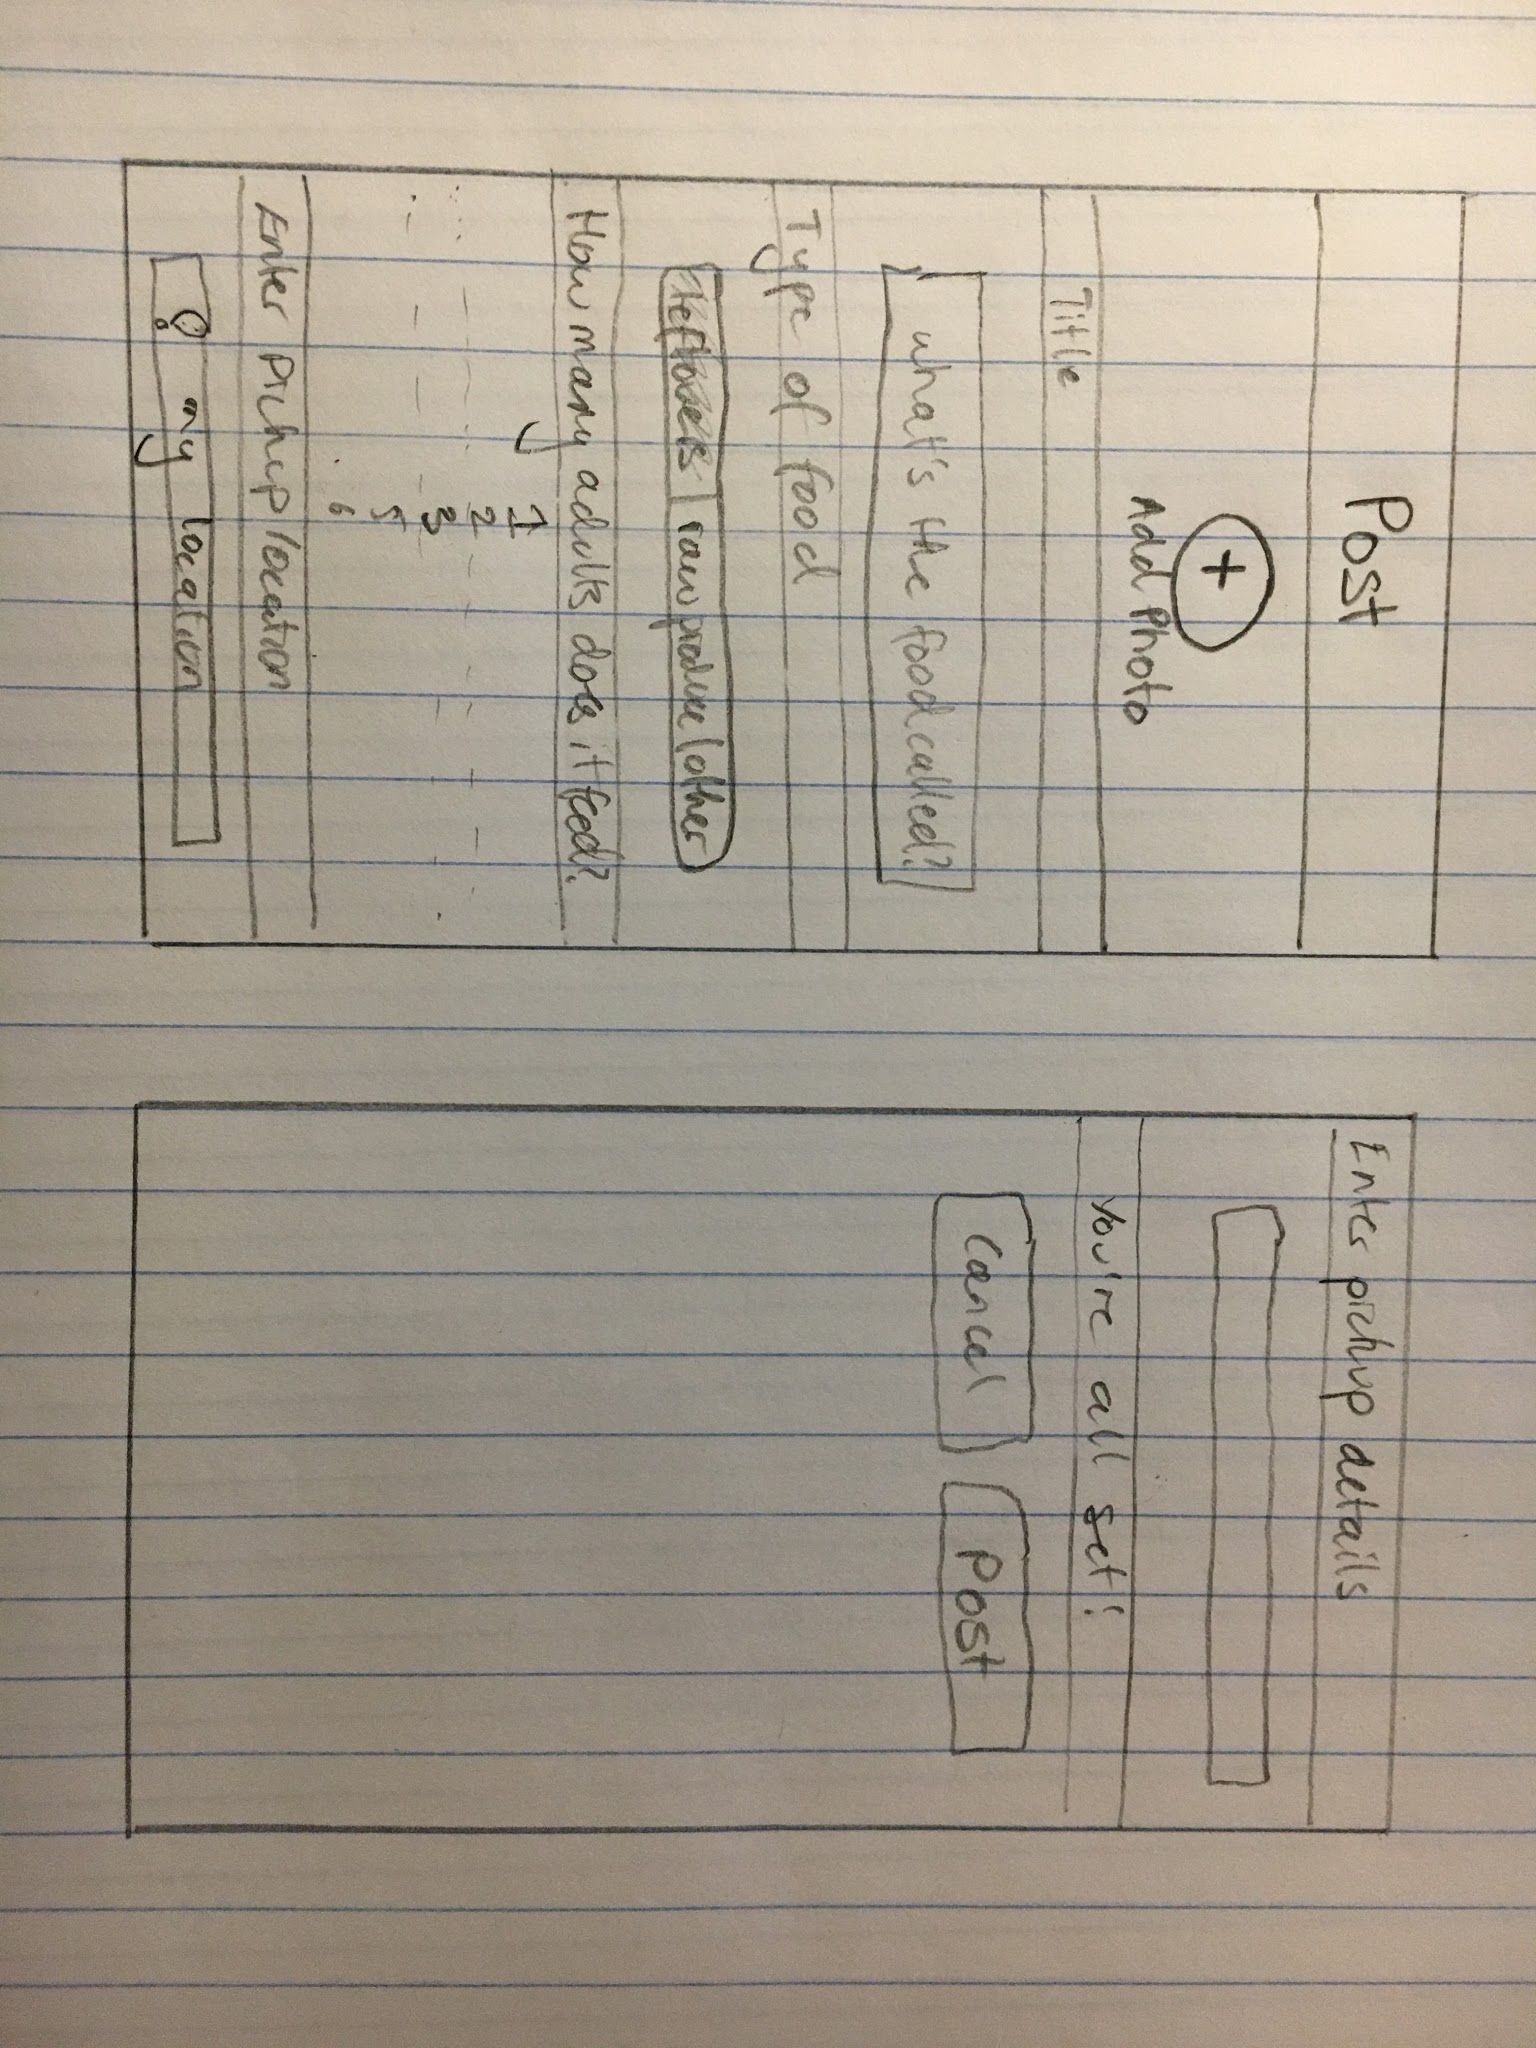 Post
+
Add Photo
Title
what's the food called?
Type of food
leftovers | raw produce | other
How many adults does it feed?
1
2
3
5
6
Enter Pickup location
my location
Enter pickup details
You're all set!
Cancel
Post